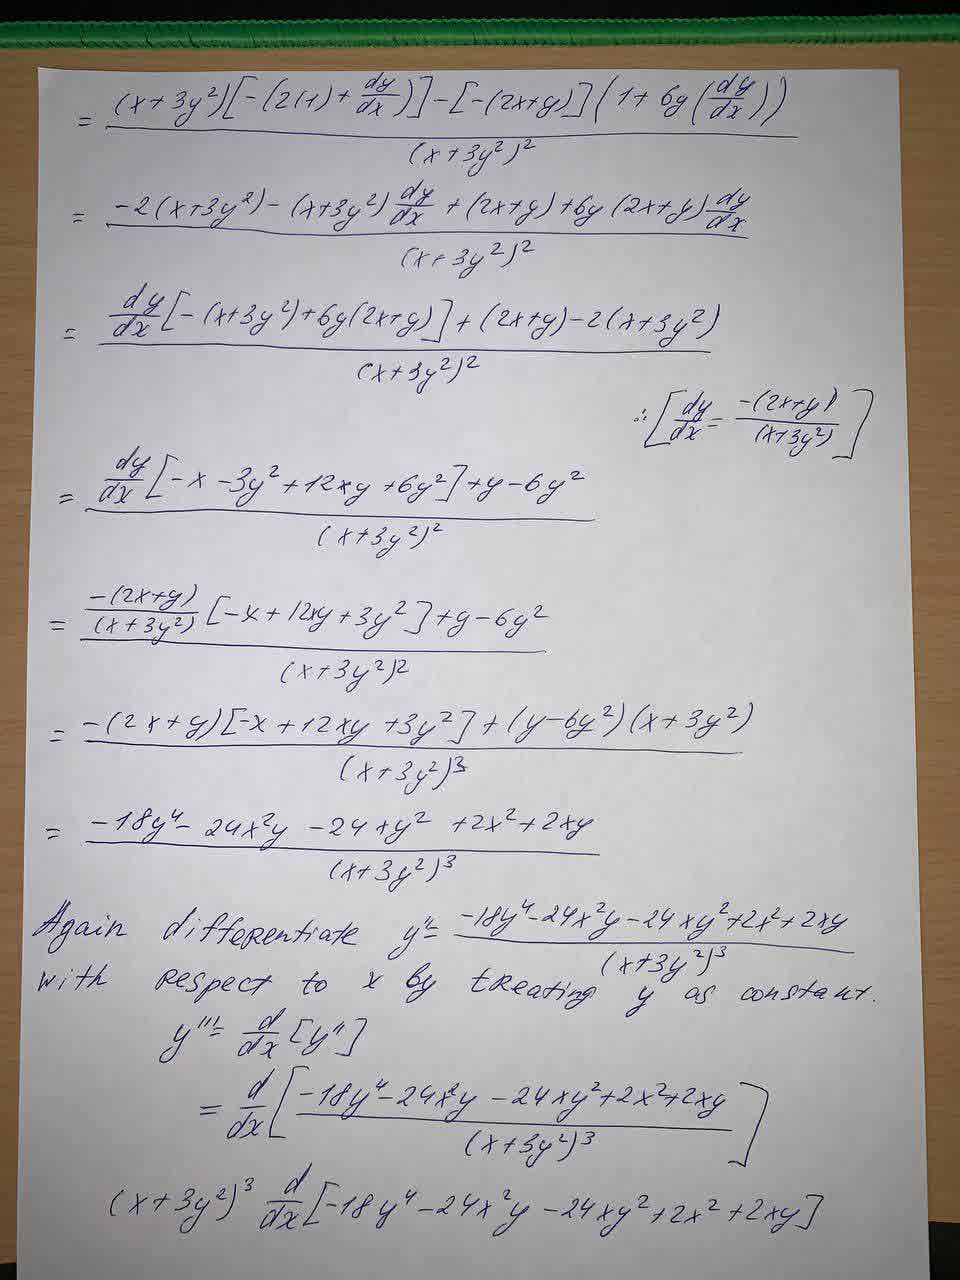 = (x+3y²)[-(2(1)+dy/dx)]-[-(2x+y)](1+6y(dy/dx)) / (x+3y²)²
= -2(x+3y²)-(x+3y²)dy/dx+(2x+y)+6y(2x+y)dy/dx / (x+3y²)²
= dy/dx[-(x+3y²)+6y(2x+y)]+(2x+y)-2(x+3y²) / (x+3y²)²
∴[dy/dx = -(2x+y)/(x+3y²)]
= dy/dx[-x-3y²+12xy+6y²]+y-6y² / (x+3y²)²
= -(2x+y)/(x+3y²)[-x+12xy+3y²]+y-6y² / (x+3y²)²
= -(2x+y)[-x+12xy+3y²]+(y-6y²)(x+3y²) / (x+3y²)³
= -18y⁴-24x²y-24xy²+2x²+2xy / (x+3y²)³
Again differentiate y''= -18y⁴-24x²y-24xy²+2x²+2xy / (x+3y²)³
with respect to x by treating y as constant.
y'''= d/dx[y'']
= d/dx[-18y⁴-24x²y-24xy²+2x²+2xy / (x+3y²)³]
(x+3y²)³ d/dx[-18y⁴-24x²y-24xy²+2x²+2xy]